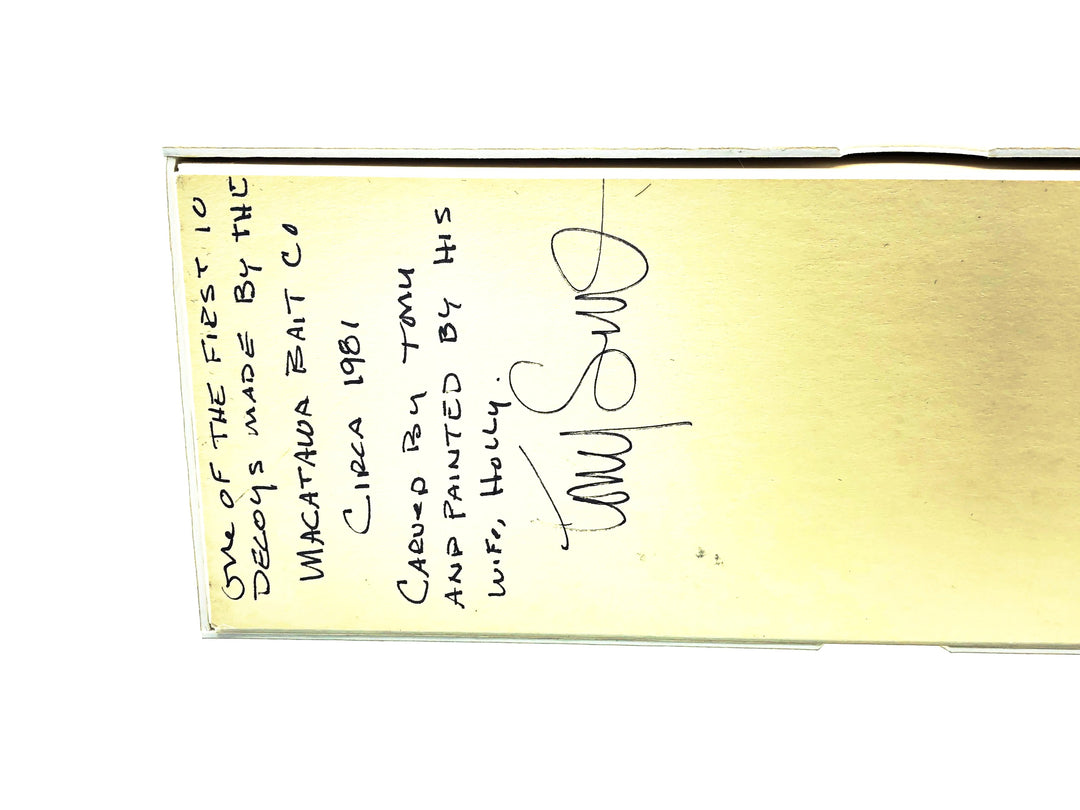 One OF THE FIRST 10
DECOYS MADE BY THE
MACATAWA BAIT CO
CIRCA 1981
CARVED BY TONY
AND PAINTED BY HIS
WIFE, HOLLY.
Tony